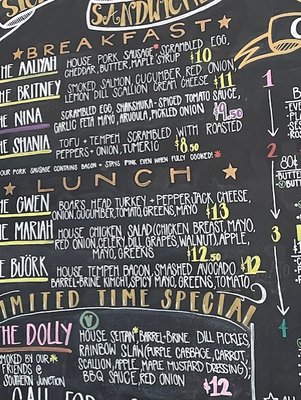 SANDWICH
BREAKFAST
THE AALIYAH HOUSE PORK SAUSAGE* SCRAMBLED EGG,
CHEDDAR, BUTTER, MAPLE SYRUP $10
THE BRITNEY SMOKED SALMON, CUCUMBER, RED ONION,
LEMON DILL SCALLION CREAM CHEESE $11
THE NINA SCRAMBLED EGG, SHAKSHUKA-SPICED TOMATO SAUCE,
GARLIC FETA MAYO, ARUGULA, PICKLED ONION $9.50
THE SHANIA TOFU + TEMPEH SCRAMBLED WITH ROASTED
PEPPERS + ONION, TUMERIC $8.50
*OUR PORK SAUSAGE CONTAINS BACON + STAYS PINK EVEN WHEN FULLY COOKED!*
LUNCH
THE GWEN BOARS HEAD TURKEY + PEPPER JACK CHEESE,
ONION, CUCUMBER, TOMATO, GREENS, MAYO $13
THE MARIAH HOUSE CHICKEN SALAD (CHICKEN BREAST, MAYO,
RED ONION, CELERY, DILL, GRAPES, WALNUT), APPLE,
MAYO, GREENS $12.50
THE BJÖRK HOUSE TEMPEH BACON, SMASHED AVOCADO $12
BARREL-BRINE KIMCHI, SPICY MAYO, GREENS, TOMATO
LIMITED TIME SPECIAL
V
THE DOLLY HOUSE SEITAN*, BARREL-BRINE DILL PICKLES,
RAINBOW SLAW (PURPLE CABBAGE, CARROT,
SCALLION, APPLE MAPLE MUSTARD DRESSING),
BBQ SAUCE, RED ONION $12
*SMOKED BY OUR
FRIENDS @
SOUTHERN JUNCTION
CALL FOR
1
2
3
4